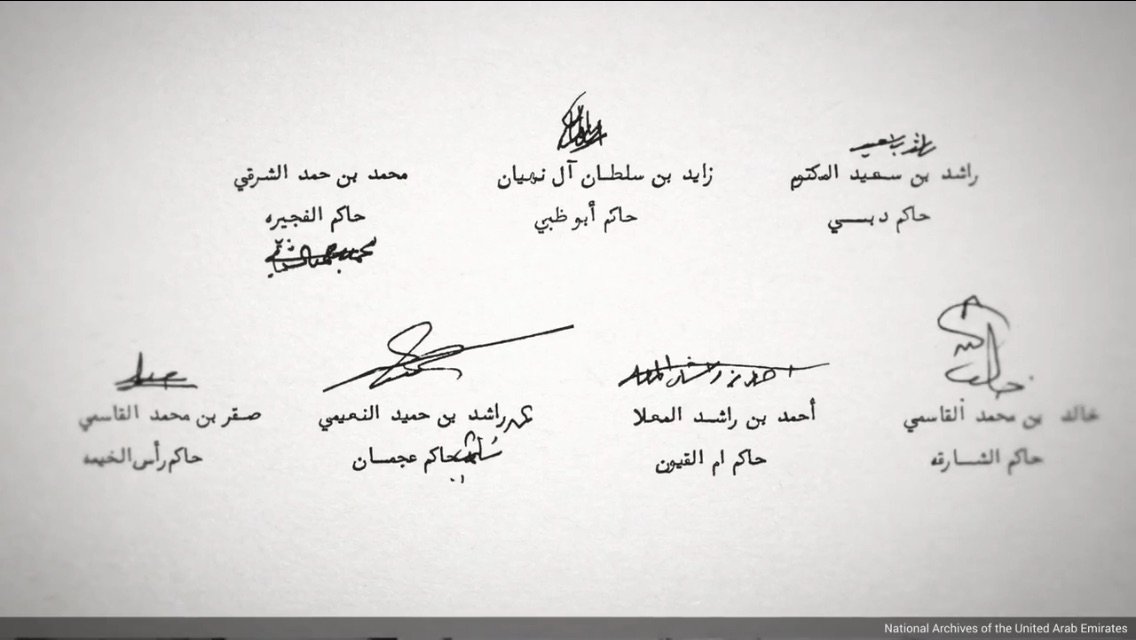 راشد بن سعيد المكتوم
زايد بن سلطان آل نهيان
محمد بن حمد الشرقي
حاكم دبـــي
حاكم أبو ظبي
حاكم الفجيره
خالد بن محمد القاسمي
أحمد بن راشد المعلا
راشد بن حميد النعيمي
صقر بن محمد القاسمي
حاكم الشارقه
حاكم ام القيون
حاكم عجمـان
حاكم رأس الخيمه
National Archives of the United Arab Emirates